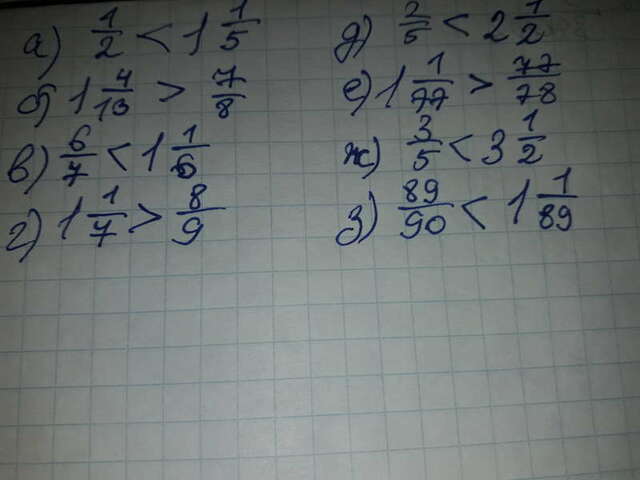 а) 1/2 < 1 1/5
б) 1 4/13 > 7/8
в) 6/7 < 1 1/6
г) 1 1/7 > 8/9
д) 2/5 < 2 1/2
е) 1 1/77 > 77/78
ж) 3/5 < 3 1/2
з) 89/90 < 1 1/89